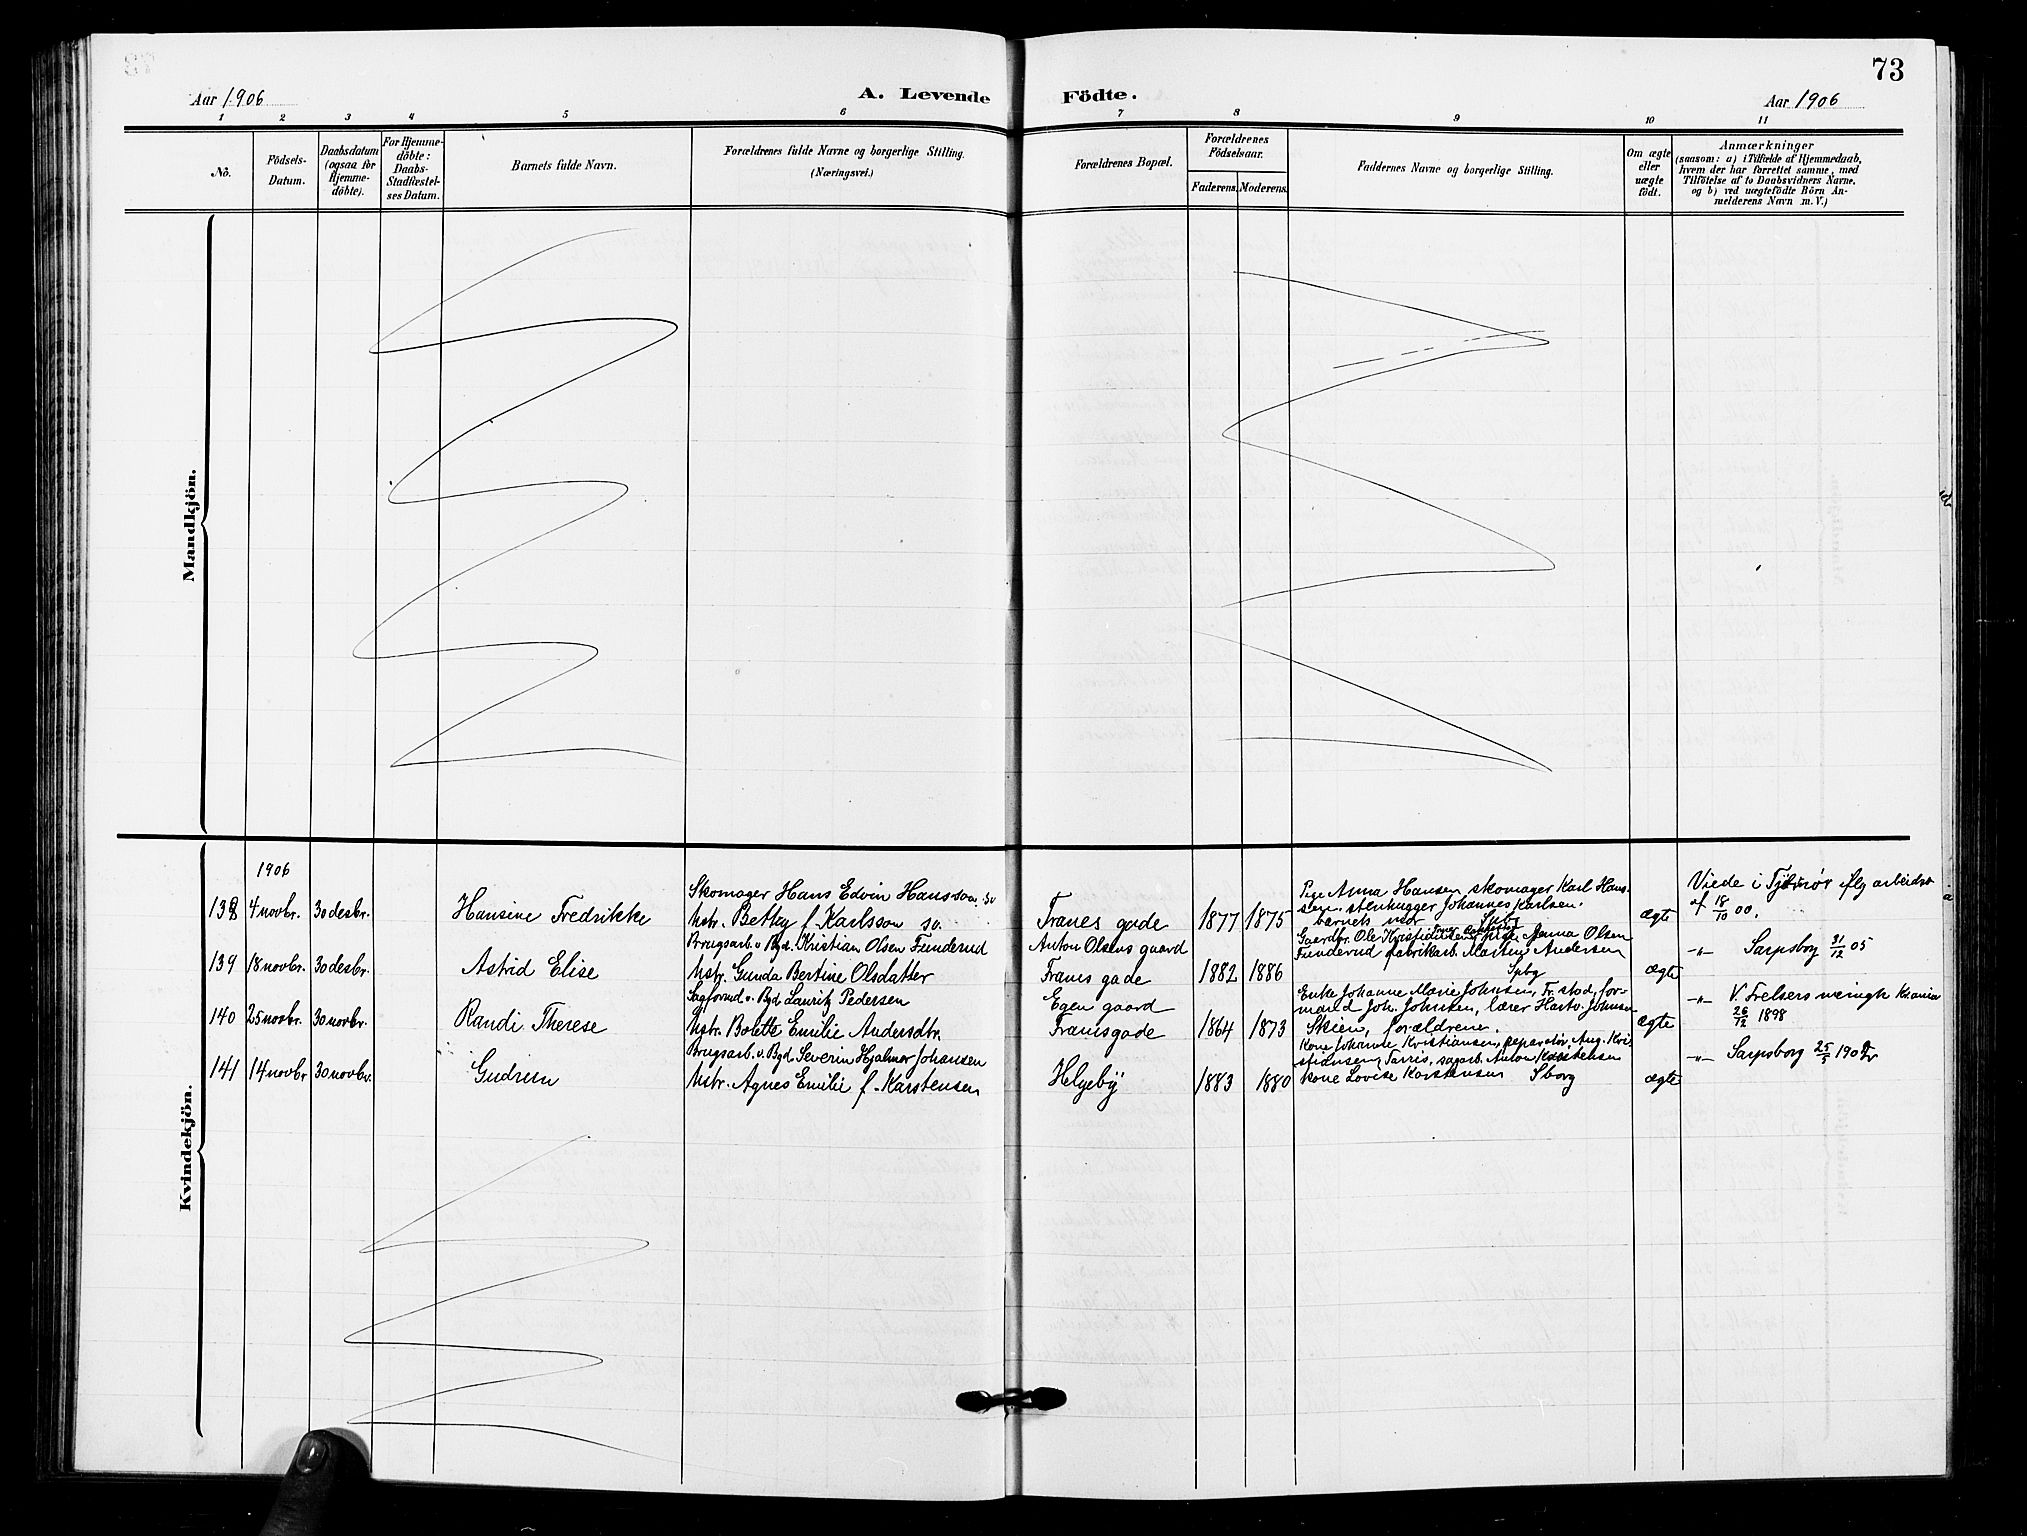 73
Aar 1906
A. Levende Födte.
Aar 1906
1 2 3 4 5 6 7 8 9 10 11
No.
Födsels-
Datum.
Daabsdatum
(ogsaa for
Hjemme-
döbte).
For Hjemme-
döbte:
Daabs-
Stadfæstel-
ses Datum.
Barnets fulde Navn.
Forældrenes fulde Navne og borgerlige Stilling.
(Næringsvei.)
Forældrenes Bopæl.
Forældrenes
Födselsaar.
Faderens. Moderens.
Faddernes Navne og borgerlige Stilling.
Om ægte
eller
uægte
födt.
Anmærkninger
(saasom: a) i Tilfælde af Hjemmedaab,
hvem der har forrettet samme, med
Tilföielse af to Daabsvidners Navne,
og b) ved uægtefödte Börn An-
melderens Navn m. V.)
Mandkjön.
Kvindekjön.
1906
138 4 novbr. 30 desbr.
Hansine Fredrikke
Skomager Hans Edvin Hansson. sv
Hstr. Betty f. Karlsson sv.
Franes gade
1877 1875
Pige Anna Hansen, skomager Karl Hans-
sen, stenhugger Johannes Karlsen.
barnets mor Spbg
ægte
Viede i
af 18/10 00.
139 18 novbr. 30 desbr.
Astrid Elise
Brugsarb. v. Bgd. Kristian Olsen Funderud
Hstr. Gunda Bertine Olsdatter
Anton Olsens gaard
Franes gade
1882 1886
Gaardbr. Ole Kristiansen, pige Anna Olsen
Funderud fabrikarb. Martin Andersen
Spbg
ægte
-"- Sarpsborg 31/12 05
140 25 novbr. 30 novbr.
Randi Therese
Sagformd. v. Bgd. Lauritz Pedersen
Hstr. Bolette Emilie Andersdtr.
Egen gaard
Franesgade
1864 1873
Enke Johanne Marie Johnsen, Fr.stad, for-
mand Joh. Johnsen, lærer Hartv. Johnsen
Skien, forældrene.
ægte
-"- V. Frelsers menigh Kr.ania
26/12 1898
141 14 novbr 30 novbr.
Gudrun
Brugsarb. v. Bgd. Severin Hjalmar Johansen
Hstr. Agnes Emilie f. Karstensen
Helgeby
1883 1880
Kone Johanne Kristiansen, reparatør Aug. Kri-
stiansen, Tarris, sagarb. Anton Karstensen
kone Lovise Karstensen Sborg
ægte
-"- Sarpsborg 25/5